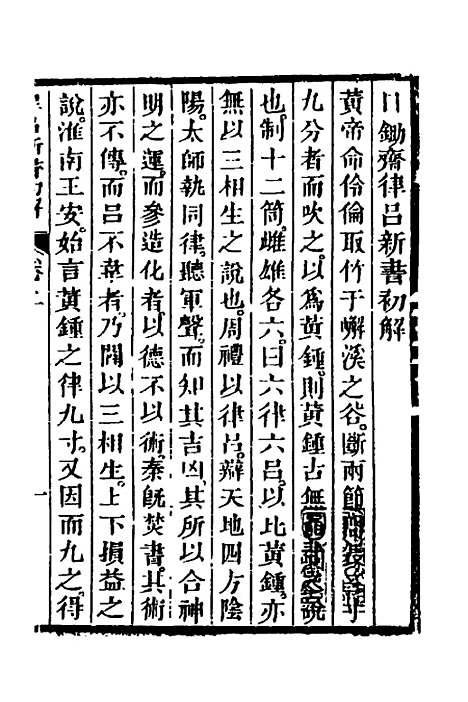 日鋤齋律呂新書初解
黃帝命伶倫取竹于嶰溪之谷。斷兩節
九分者而吹之。以爲黃鍾。則黃鍾古無說
也。制十二筒。雌雄各六。曰六律六呂。以比黃鍾。亦
無以三相生之說也。周禮以律呂。辯天地四方陰
陽。太師執同律。聽軍聲。而知其吉凶。其所以合神
明之運。而參造化者。以德不以術。秦旣焚書。其術
亦不傳。而呂不韋者。乃闓以三相生。上下損益之
說。淮南王安。始言黃鍾之律九寸。又因而九之。得
卷一
一